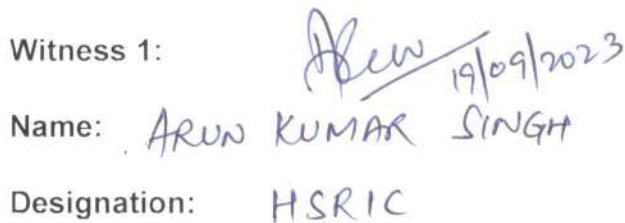 Witness 1: Arun 19/09/2023
Name: ARUN KUMAR SINGH
Designation: HSRIC